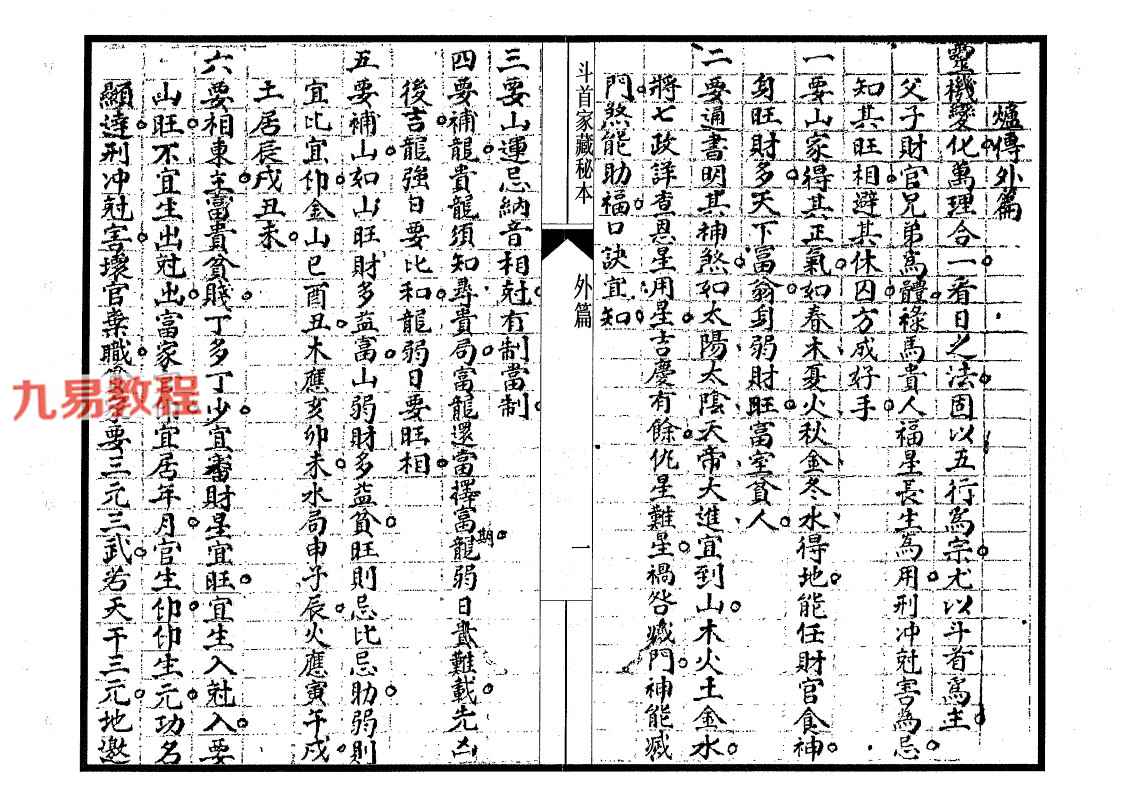 爐傳外篇
靈機變化萬理合一看日之法固以五行為宗尤以斗首寫主
父子財官兄弟寫體祿馬貴人福星長生為用刑冲尅害為忌
知其旺相避其休囚方成好手
一要山家得其正氣如春木夏火秋金冬水得地能任財官食神
身旺財多天下富翁身弱財旺富室貧人
二要通書明其神煞如太陽太陰天帝大進宜到山木火土金水
將七政詳查恩星用星吉慶有餘仇星難星禍咎藏門神能臧
門煞能助福口訣宜知
斗首家藏秘本
外篇
一
三要山運忌納音相尅有制當制
四要補龍貴龍須知尋貴局富龍還當擇富期龍弱日貴難載先凶
後吉龍強日要比和龍弱日要旺相
五要補山如山旺財多益富山弱財多益貧旺則忌比忌助弱則
宜比宜仰金山巳酉丑木應亥卯未水局申子辰火應寅午戌
土居辰戌丑未
六要相東主富貴貧賤丁多丁少宜審財星宜旺宜生入尅入要
山旺不宜生出尅出富家宜居年月官生仰仰生元功名
顯達刑冲尅害壞官棄職要三元三武若天干三元地邀
九易教程